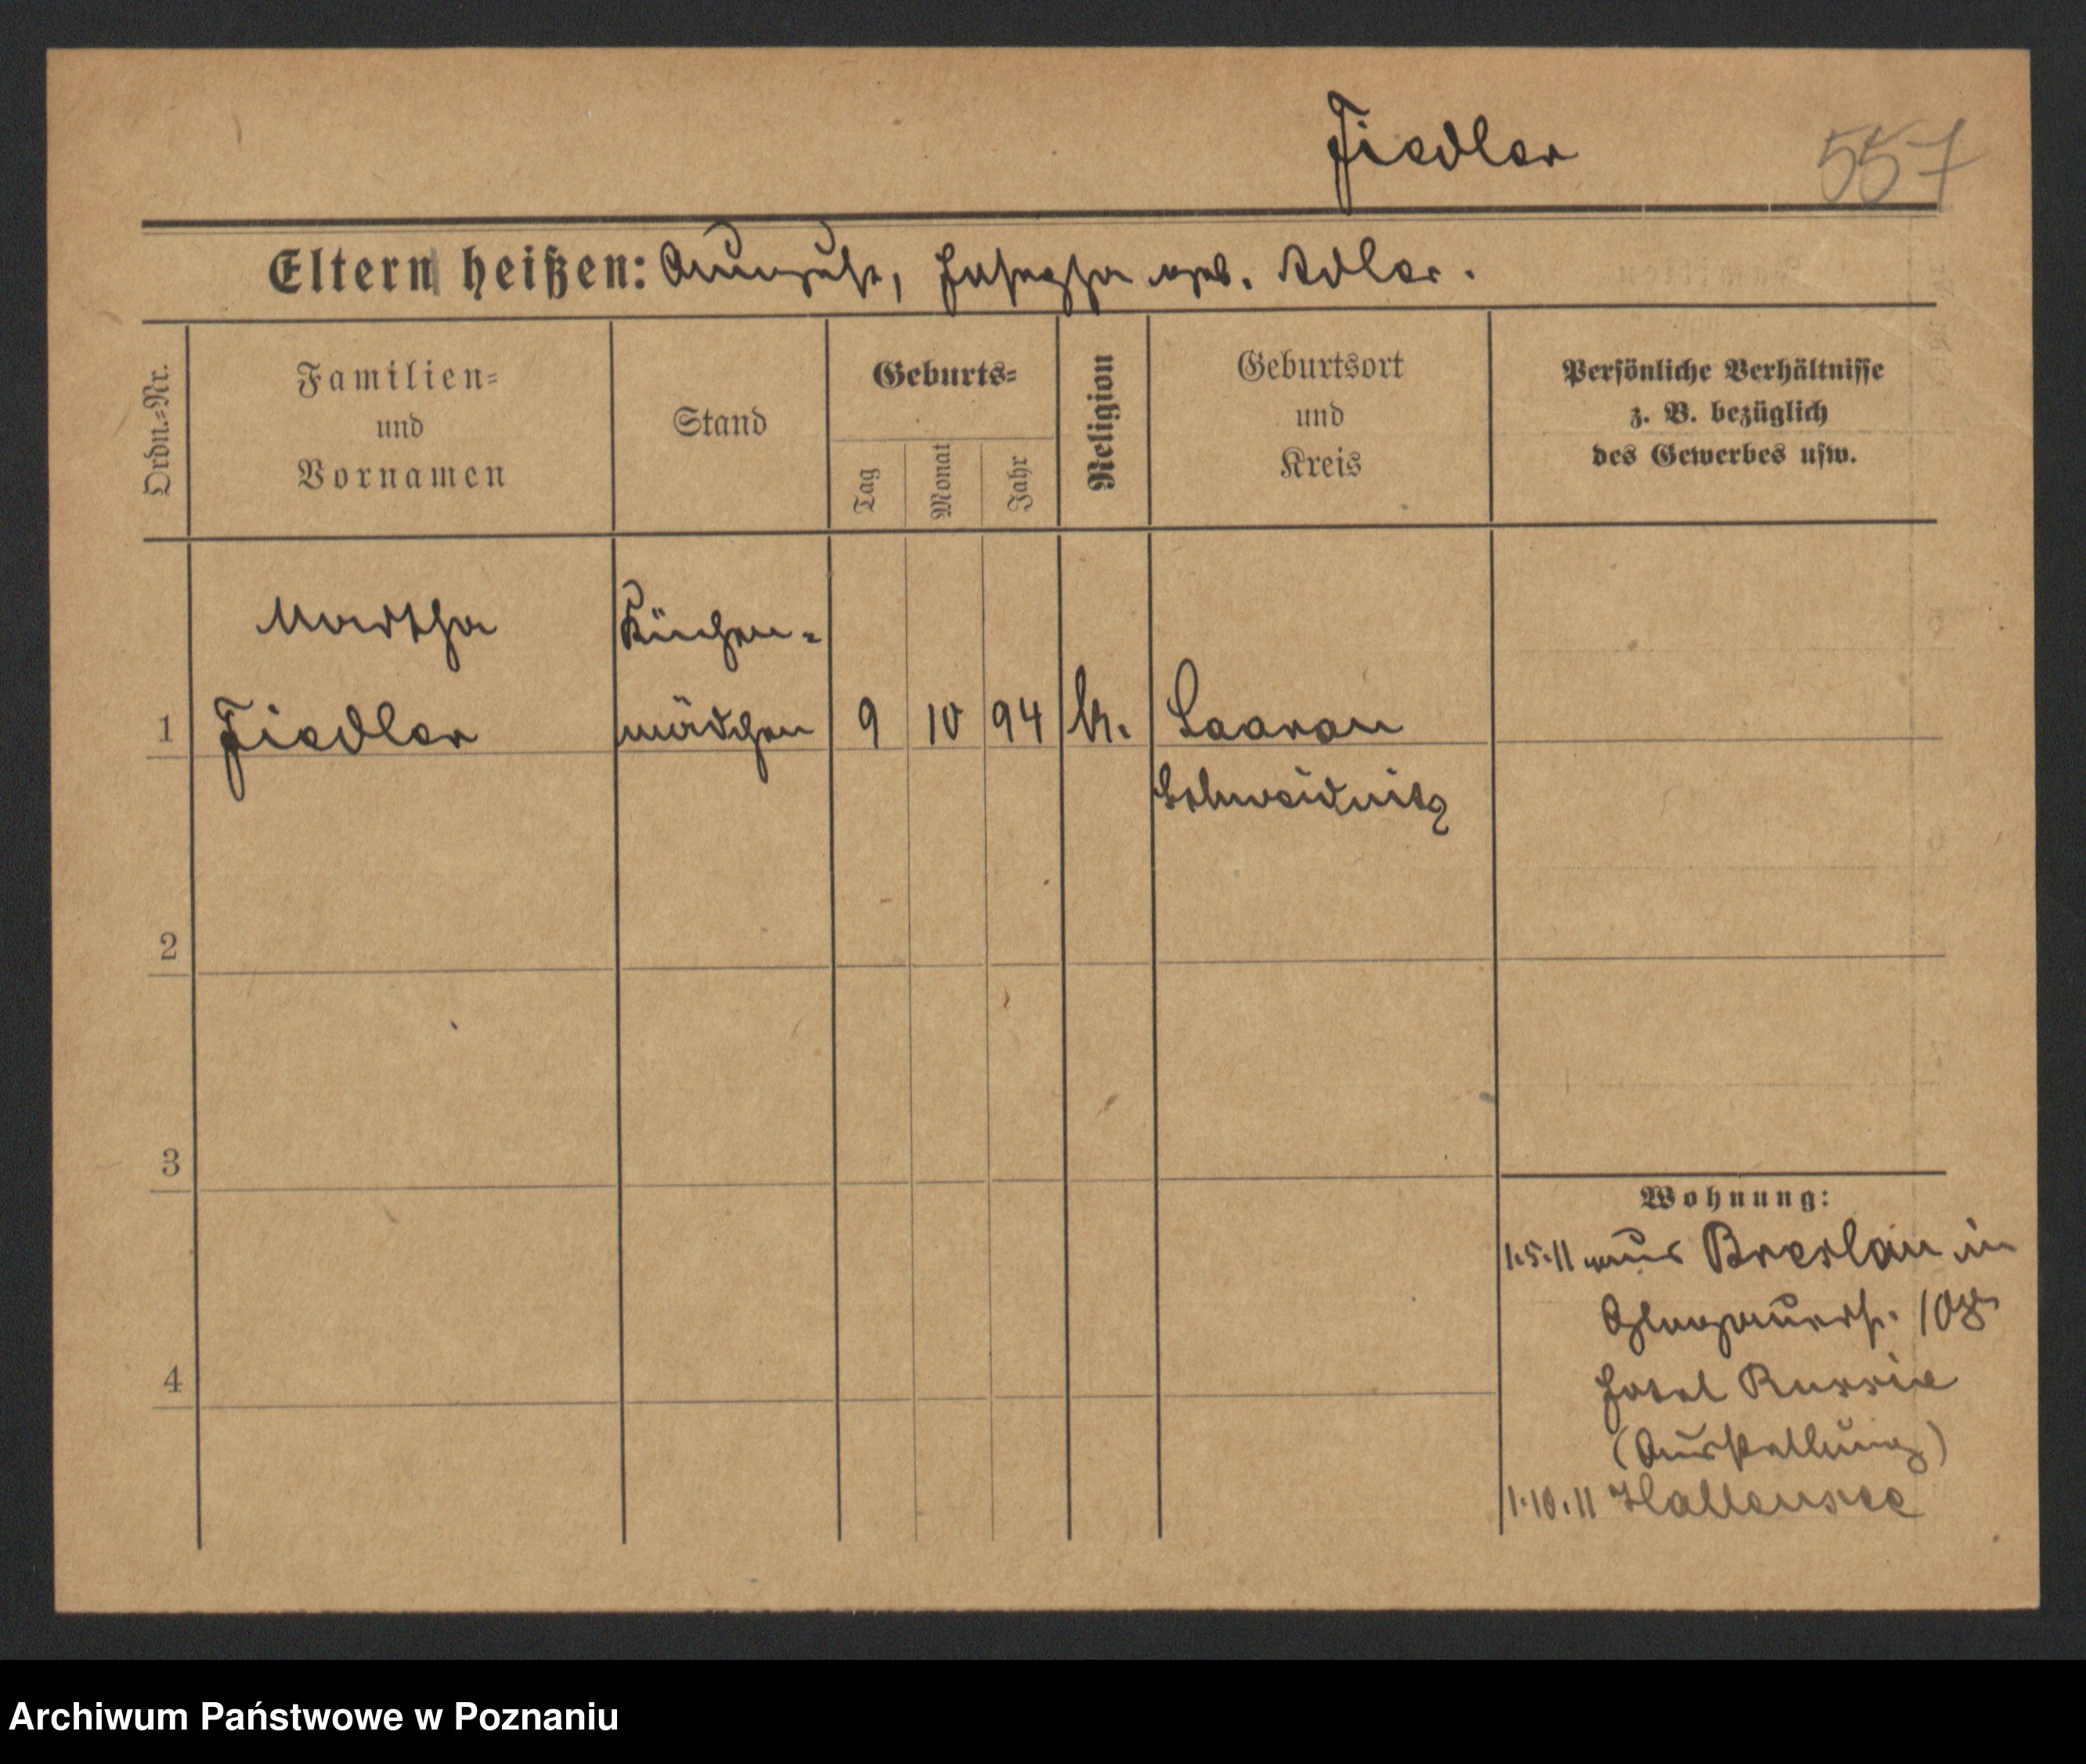 Fiedler
557
Eltern heißen: August, Josepha geb. Adler.
Ordn.-Nr.
Familien-
und
Vornamen
Stand
Geburts-
Tag
Monat
Jahr
Religion
Geburtsort
und
Kreis
Persönliche Verhältnisse
z. B. bezüglich
des Gewerbes usw.
Martha
Küchen-
1 Fiedler mädchen 9 10 94 k. Saarau
Schweidnitz
2
3
4
Wohnung:
1.5.11 aus Breslau in
Glogauerst.
Hotel Russie
(Ausstellung)
1.10.11 Hallensee
Archiwum Państwowe w Poznaniu